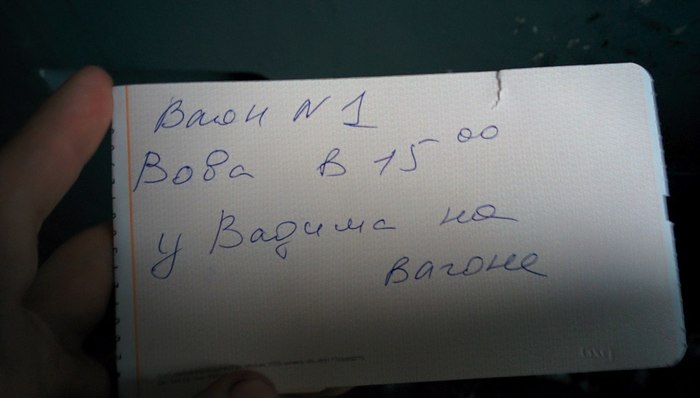 Вагон N 1
Вова в 15 00
у Вадима на
вагоне